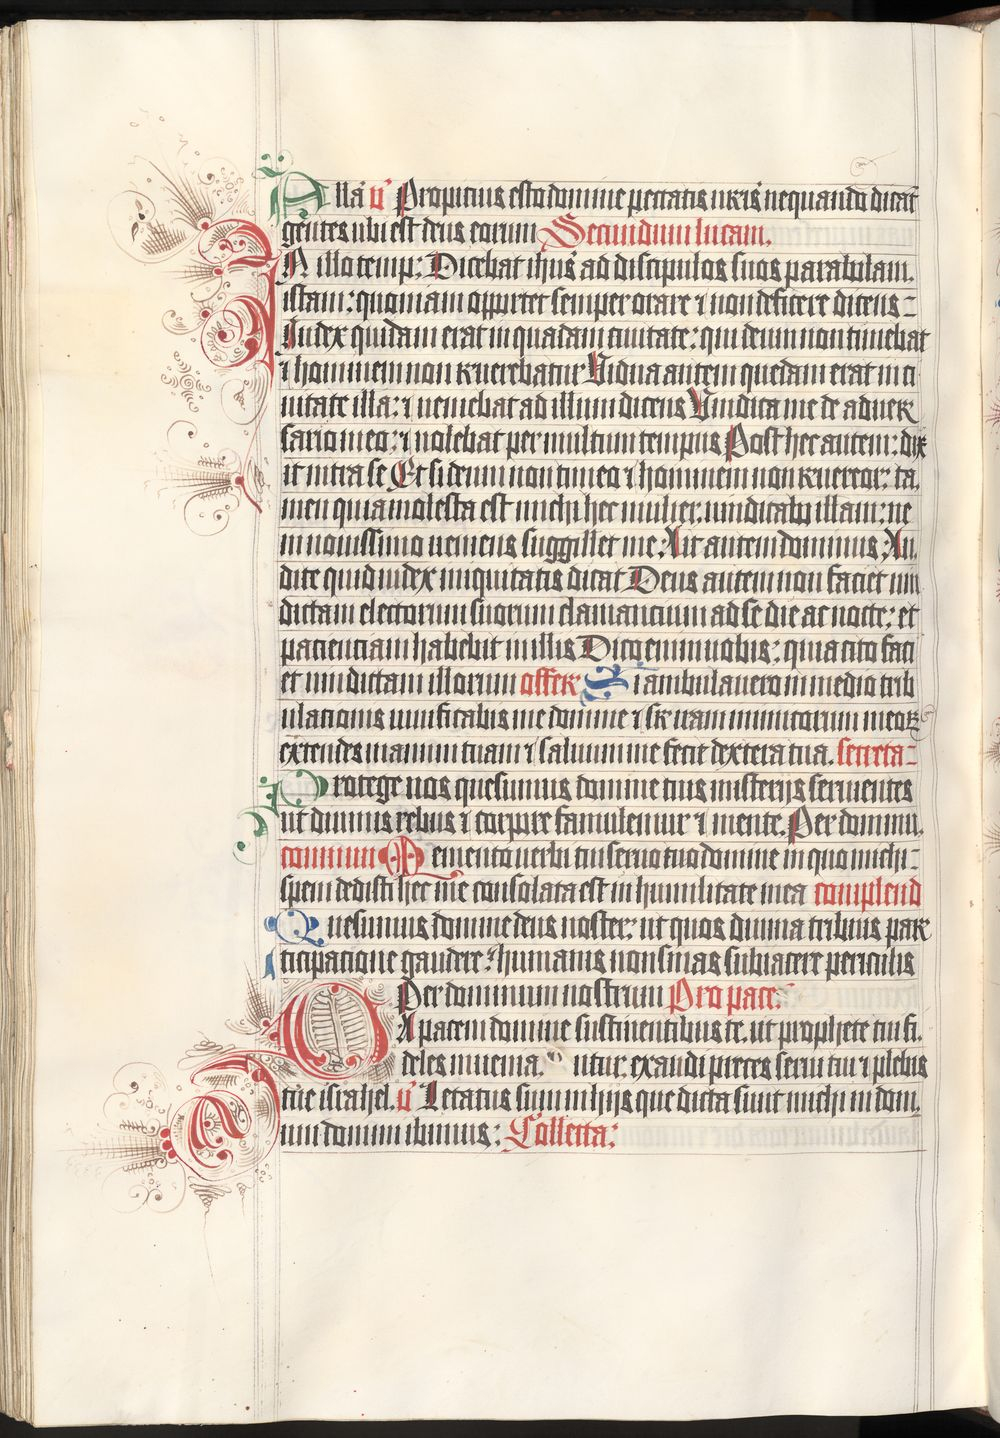 Alla ℣ Propitius esto domine peccatis nr̄is nequando dicāt
gentes ubi est deus eorum Secundum lucam.
IN illo temp: Dicebat ihūs ad discipulos suos parabolam.
istam: quoniam opportet semper orare ⁊ non deficere dicens-
Iudex quidam erat in quadam ciuitate: qui deum non timebat
⁊ hominem non reuerebatur Vidua autem quedam erat in ci
uitate illa: ⁊ ueniebat ad illum dicens Vindica me de aduer
sario meo: ⁊ nolebat per multum tempus Post hec autem: dix
it intra se Et si deum non timeo ⁊ hominem non reuereor: ta.
men quia molesta est michi hec mulier: uindicabo illam: ne
in nouissimo ueniens suggillet me: Ait autem dominus: Au.
dite quid iudex iniquitatis dicat Deus autem non faciet uin
dictam electorum suorum clamancium ad se die ac nocte: et
pacienciam habebit in illis Dico enim uobis: quia cito faci
et uindictam illorum offer Si ambulauero in medio trib
ulationis uiuificabis me domine ⁊ sr̄ iram inimicorum meoꝝ
extendes manum tuam ⁊ saluum me fecit dextera tua. secreta-
Protege nos quesumus domine tuis misterijs seruientes
ut diuinis rebus ⁊ corpore famulemur ⁊ mente. Per dominū.
comiun Memento uerbi tui seruo tuo domine in quo michi-
spem dedisti hec me consolata est in humilitate mea complend
Quesumus domine deus noster: ut quos diuina tribuis par
ticipacione gaudere: humanis non sinas subiacere periculis
Per dominum nostrum Pro pace:
DA pacem domine sustinentibus te. ut prophete tui fi.
deles inueniantur. exaudi preces serui tui ⁊ plebis
tue israhel. ℣ Letatus sum in hijs que dicta sunt michi in dom.
um domini ibimus: Collecta: